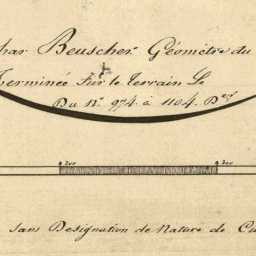 har Beuscher Géomètre du
Terminée Sur le Terrain Le
Du Nº 974 à 1104. Der
sans Designation de Nature de Cu